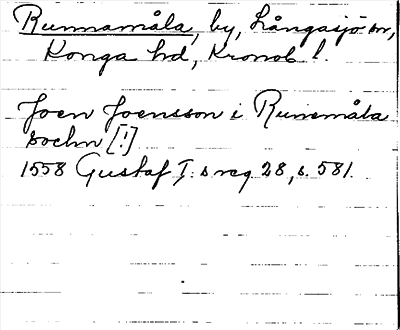 Runnamåla, by, Långasjö sn,
Konga hd, Kronob l.
Joen Joensson i Runemåla
sochn [!]
1558 Gustaf I:s reg 28, s. 581.